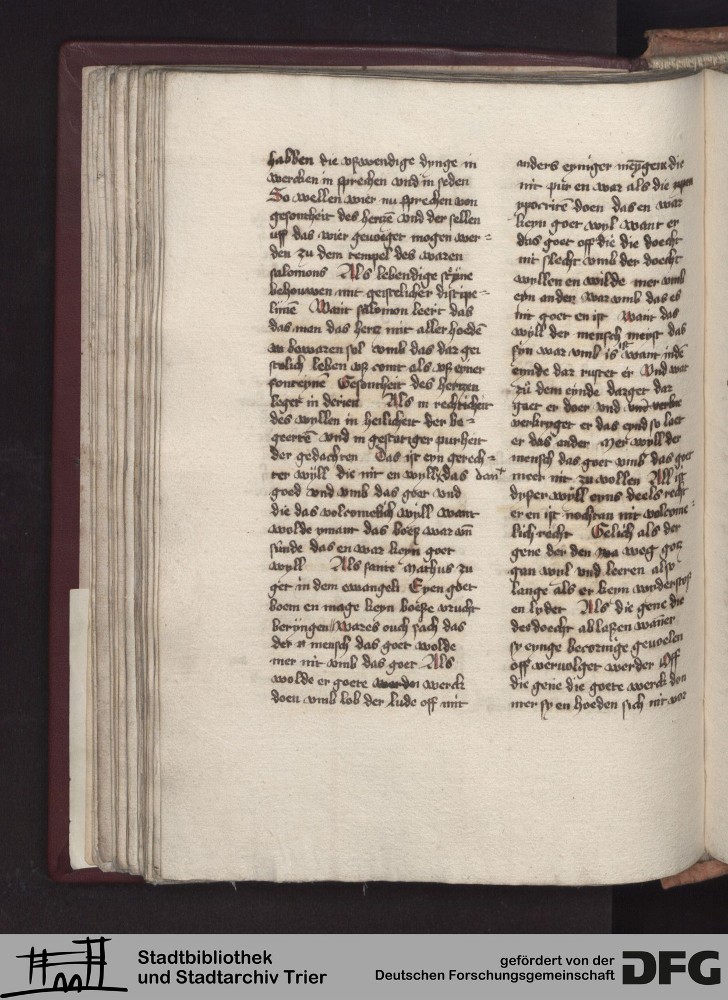 habben die vßwendige dynge in
wercken in sprechen vnd in seden
So wellen wier nu sprechen von
gesontheit des hertzen vnd der sellen
uff das wier geuoeget mogen wer=
den zu dem tempel des waren
salomons Als lebendige steyne
behouwen mit geistelicher discipe=
linen Want salomon leert das
das man das hertz mit aller hoeden
bewaren sol vmb das dar gei
stelich leben vß comt als vß eyner
fonteynen Gesontheit des hertzen
leget in derien Als in rechticheit
des wyllen in heilicheit der be=
geerten vnd in gestatiger purheit
der gedachten Das ist eyn gerech=
ter wyll die nit en wyll das dan
goed vnd vmb das goet vnd
die das volcomelich wyll want
wolde ymant das boeß war vm
sunde das en war keyn goet
wyll Als sante Matheus zu
get in dem ewangeli Eyen goet
boem en mage keyn boeße vrucht
beryngen Wares ouch sach das
der mensch das goet wolde
mer nit vmb das goet Als
wolde er goete werck
doen vmb lob der lude off mit
anders eyniger die
nit pur en war als die
ypocriten doen das en war
keyn goet wyl want er
das goet off die die doecht
nit slecht vmb der doecht
wyllen en wilde mer vmb
eyn anden War vmb das es
nit goet en ist Want das
wyll der mensch meist das
syn war vmb is want inden
einde dar rustet er Vnd wat
zu dem einde darget dar
gaet er doer vnd
verkryget er das eynd so laet
er das ander Mer wyll der
mensch das goet vmb das goet
meer nit zu wollen All ist
dyser wyll eyns deels recht
er en ist nochtan nit volcome=
lich recht Gelich als der
gene der den weg
gan wyl vnd leeren also
lange als er keyn
en lydet Als die gene die
des doecht ablaßen waner
sy eynge becoringe gevoelen
off vervolget werder Off
die gene die goete werck don
mer sy en hoeden sich nit vor
Stadtbibliothek
und Stadtarchiv Trier
gefördert von der
Deutschen Forschungsgemeinschaft
DFG